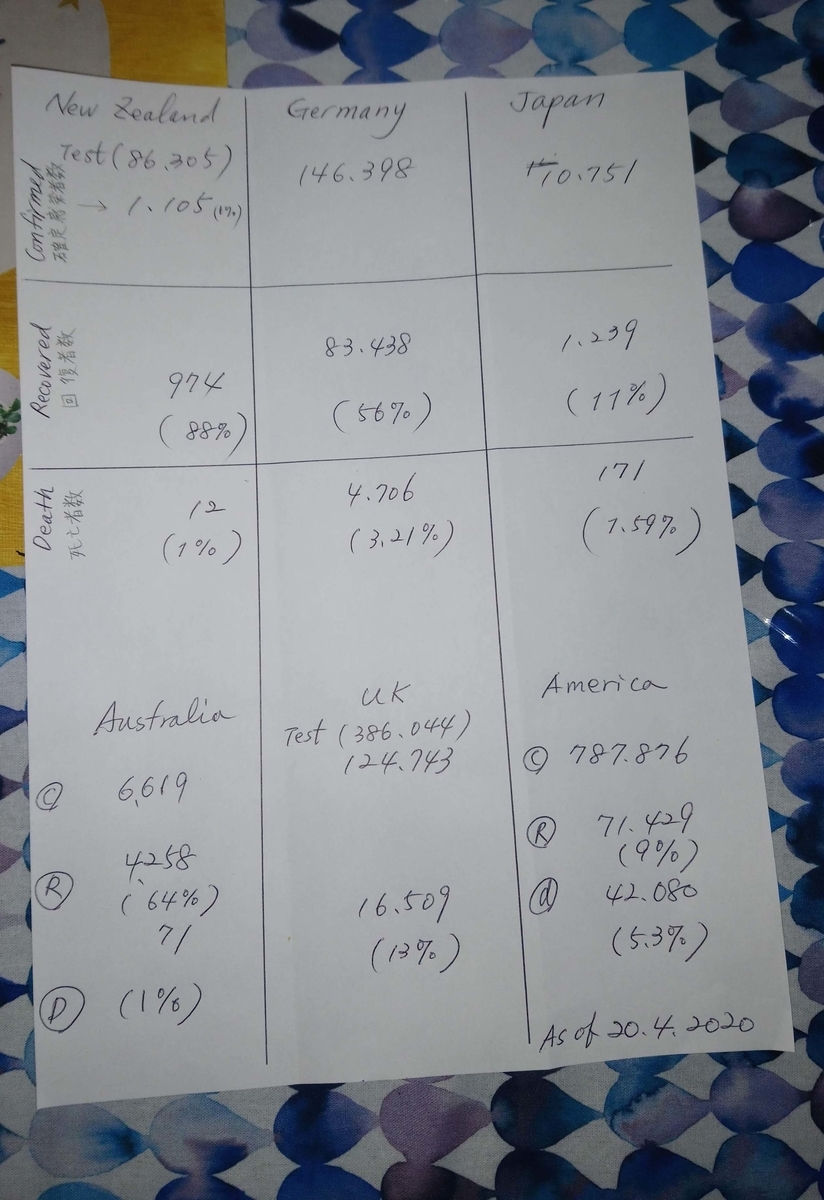 New Zealand
Germany
Japan
Confirmed
確定感染者数
Test (86.305)
→ 1.105 (1%)
146.398
10.751
Recovered
回復者数
974
(88%)
83.438
(56%)
1.239
(11%)
Death
死亡者数
12
(1%)
4.706
(3.21%)
171
(1.59%)
Australia
Ⓒ 6,619
Ⓡ 4258
(64%)
71
Ⓓ (1%)
UK
Test (386.044)
124.743
16.509
(13%)
America
Ⓒ 787.876
Ⓡ 71.429
(9%)
ⓓ 42.080
(5.3%)
As of 20.4.2020